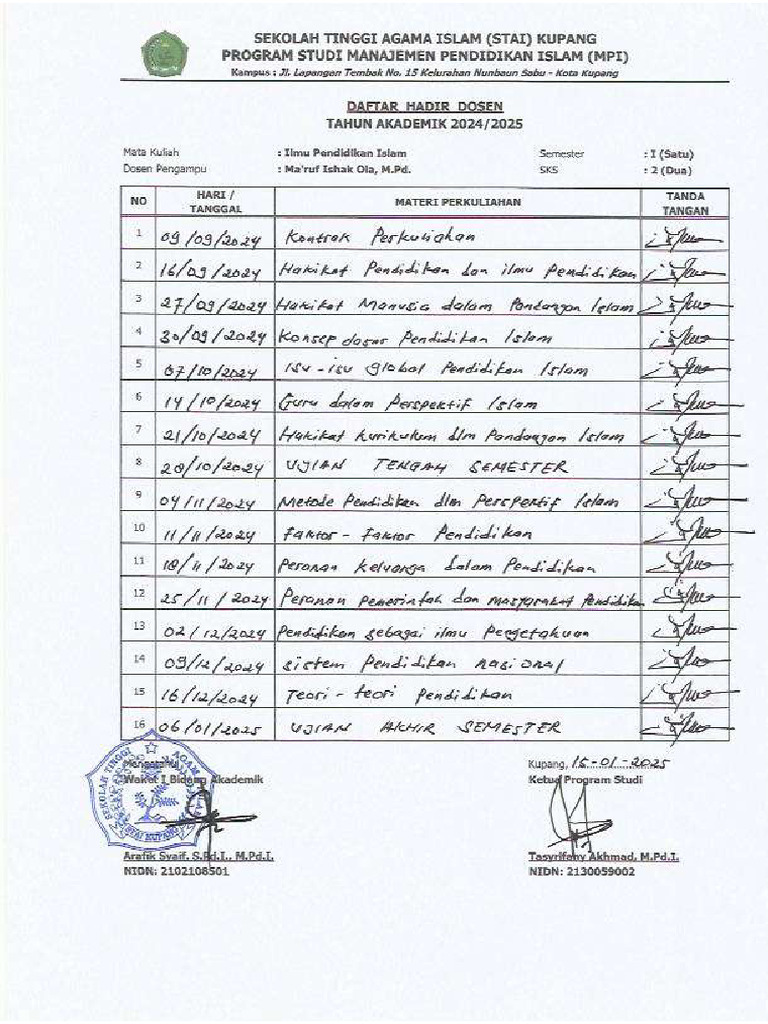 SEKOLAH TINGGI AGAMA ISLAM (STAI) KUPANG
PROGRAM STUDI MANAJEMEN PENDIDIKAN ISLAM (MPI)
Kampus : Jl. Lapangan Tembak No. 15 Kelurahan Nunbaun Sabu - Kota Kupang
DAFTAR HADIR DOSEN
TAHUN AKADEMIK 2024/2025
Mata Kuliah : Ilmu Pendidikan Islam Semester : I (Satu)
Dosen Pengampu : Ma'ruf Ishak Ola, M.Pd. SKS : 2 (Dua)
NO HARI / TANGGAL MATERI PERKULIAHAN TANDA TANGAN
1 09/09/2024 Kontrak Perkuliahan
2 16/09/2024 Hakikat Pendidikan dan ilmu Pendidikan
3 27/09/2024 Hakikat Manusia dalam Pandangan Islam
4 30/09/2024 Konsep dasar Pendidikan Islam
5 07/10/2024 Isu-isu Global Pendidikan Islam
6 14/10/2024 Guru dalam Perspektif Islam
7 21/10/2024 Hakikat Kurikulum dlm Pandangan Islam
8 28/10/2024 UJIAN TENGAH SEMESTER
9 04/11/2024 Metode Pendidikan dlm Perspektif Islam
10 11/11/2024 Faktor-Faktor Pendidikan
11 18/11/2024 Peranan Keluarga dalam Pendidikan
12 25/11/2024 Peranan Pemerintah dan Masyarakat Pendidikan
13 02/12/2024 Pendidikan sebagai ilmu Pengetahuan
14 09/12/2024 Sistem Pendidikan Nasional
15 16/12/2024 Teori-teori Pendidikan
16 06/01/2025 UJIAN AKHIR SEMESTER
Mengetahui Kupang, 15-01-2025
Waket I Bidang Akademik Ketua Program Studi
SEKOLAH TINGGI AGAMA
STAI KUPANG
Arafik Syaif, S.Pd.I., M.Pd.I. Tasyrifany Akhmad, M.Pd.I.
NIDN: 2102108501 NIDN: 2130059002